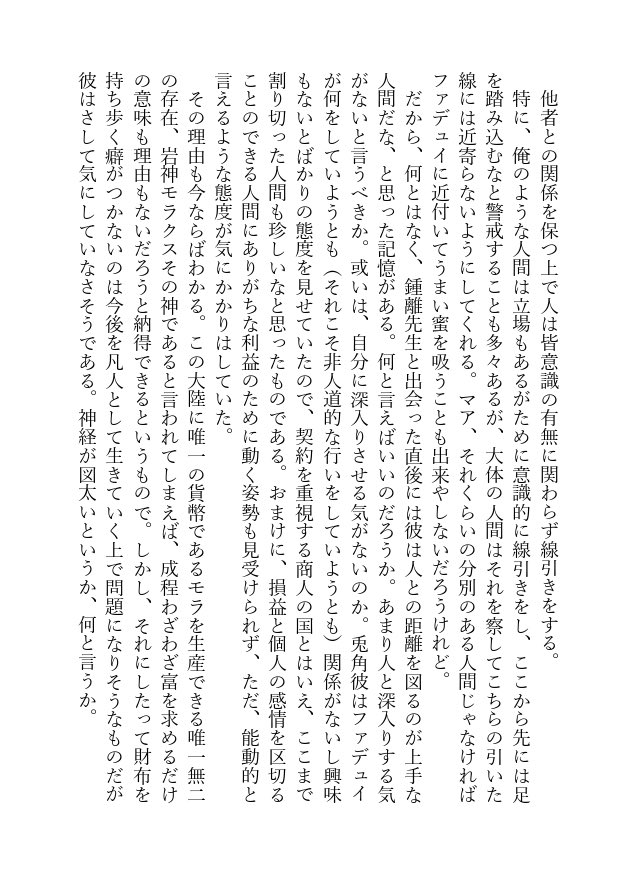 他者との関係を保つ上で人は皆意識の有無に関わらず線引きをする。
特に、俺のような人間は立場もあるがために意識的に線引きをし、ここから先には足
を踏み込むなと警戒することも多々あるが、大体の人間はそれを察してこちらの引いた
線には近寄らないようにしてくれる。マア、それくらいの分別のある人間じゃなければ
ファデュイに近付いてうまい蜜を吸うことも出来やしないだろうけれど。
だから、何とはなく、鍾離先生と出会った直後には彼は人との距離を図るのが上手な
人間だな、と思った記憶がある。何と言えばいいのだろうか。あまり人と深入りする気
がないと言うべきか。或いは、自分に深入りさせる気がないのか。兎角彼はファデュイ
が何をしていようとも（それこそ非人道的な行いをしていようとも）関係がないし興味
もないとばかりの態度を見せていたので、契約を重視する商人の国とはいえ、ここまで
割り切った人間も珍しいなと思ったものである。おまけに、損益と個人の感情を区切る
ことのできる人間にありがちな利益のために動く姿勢も見受けられず、ただ、能動的と
言えるような態度が気にかかりはしていた。
その理由も今ならばわかる。この大陸に唯一の貨幣であるモラを生産できる唯一無二
の存在、岩神モラクスその神であると言われてしまえば、成程わざわざ富を求めるだけ
の意味も理由もないだろうと納得できるというもので。しかし、それにしたって財布を
持ち歩く癖がつかないのは今後を凡人として生きていく上で問題になりそうなものだが
彼はさして気にしていなさそうである。神経が図太いというか、何と言うか。